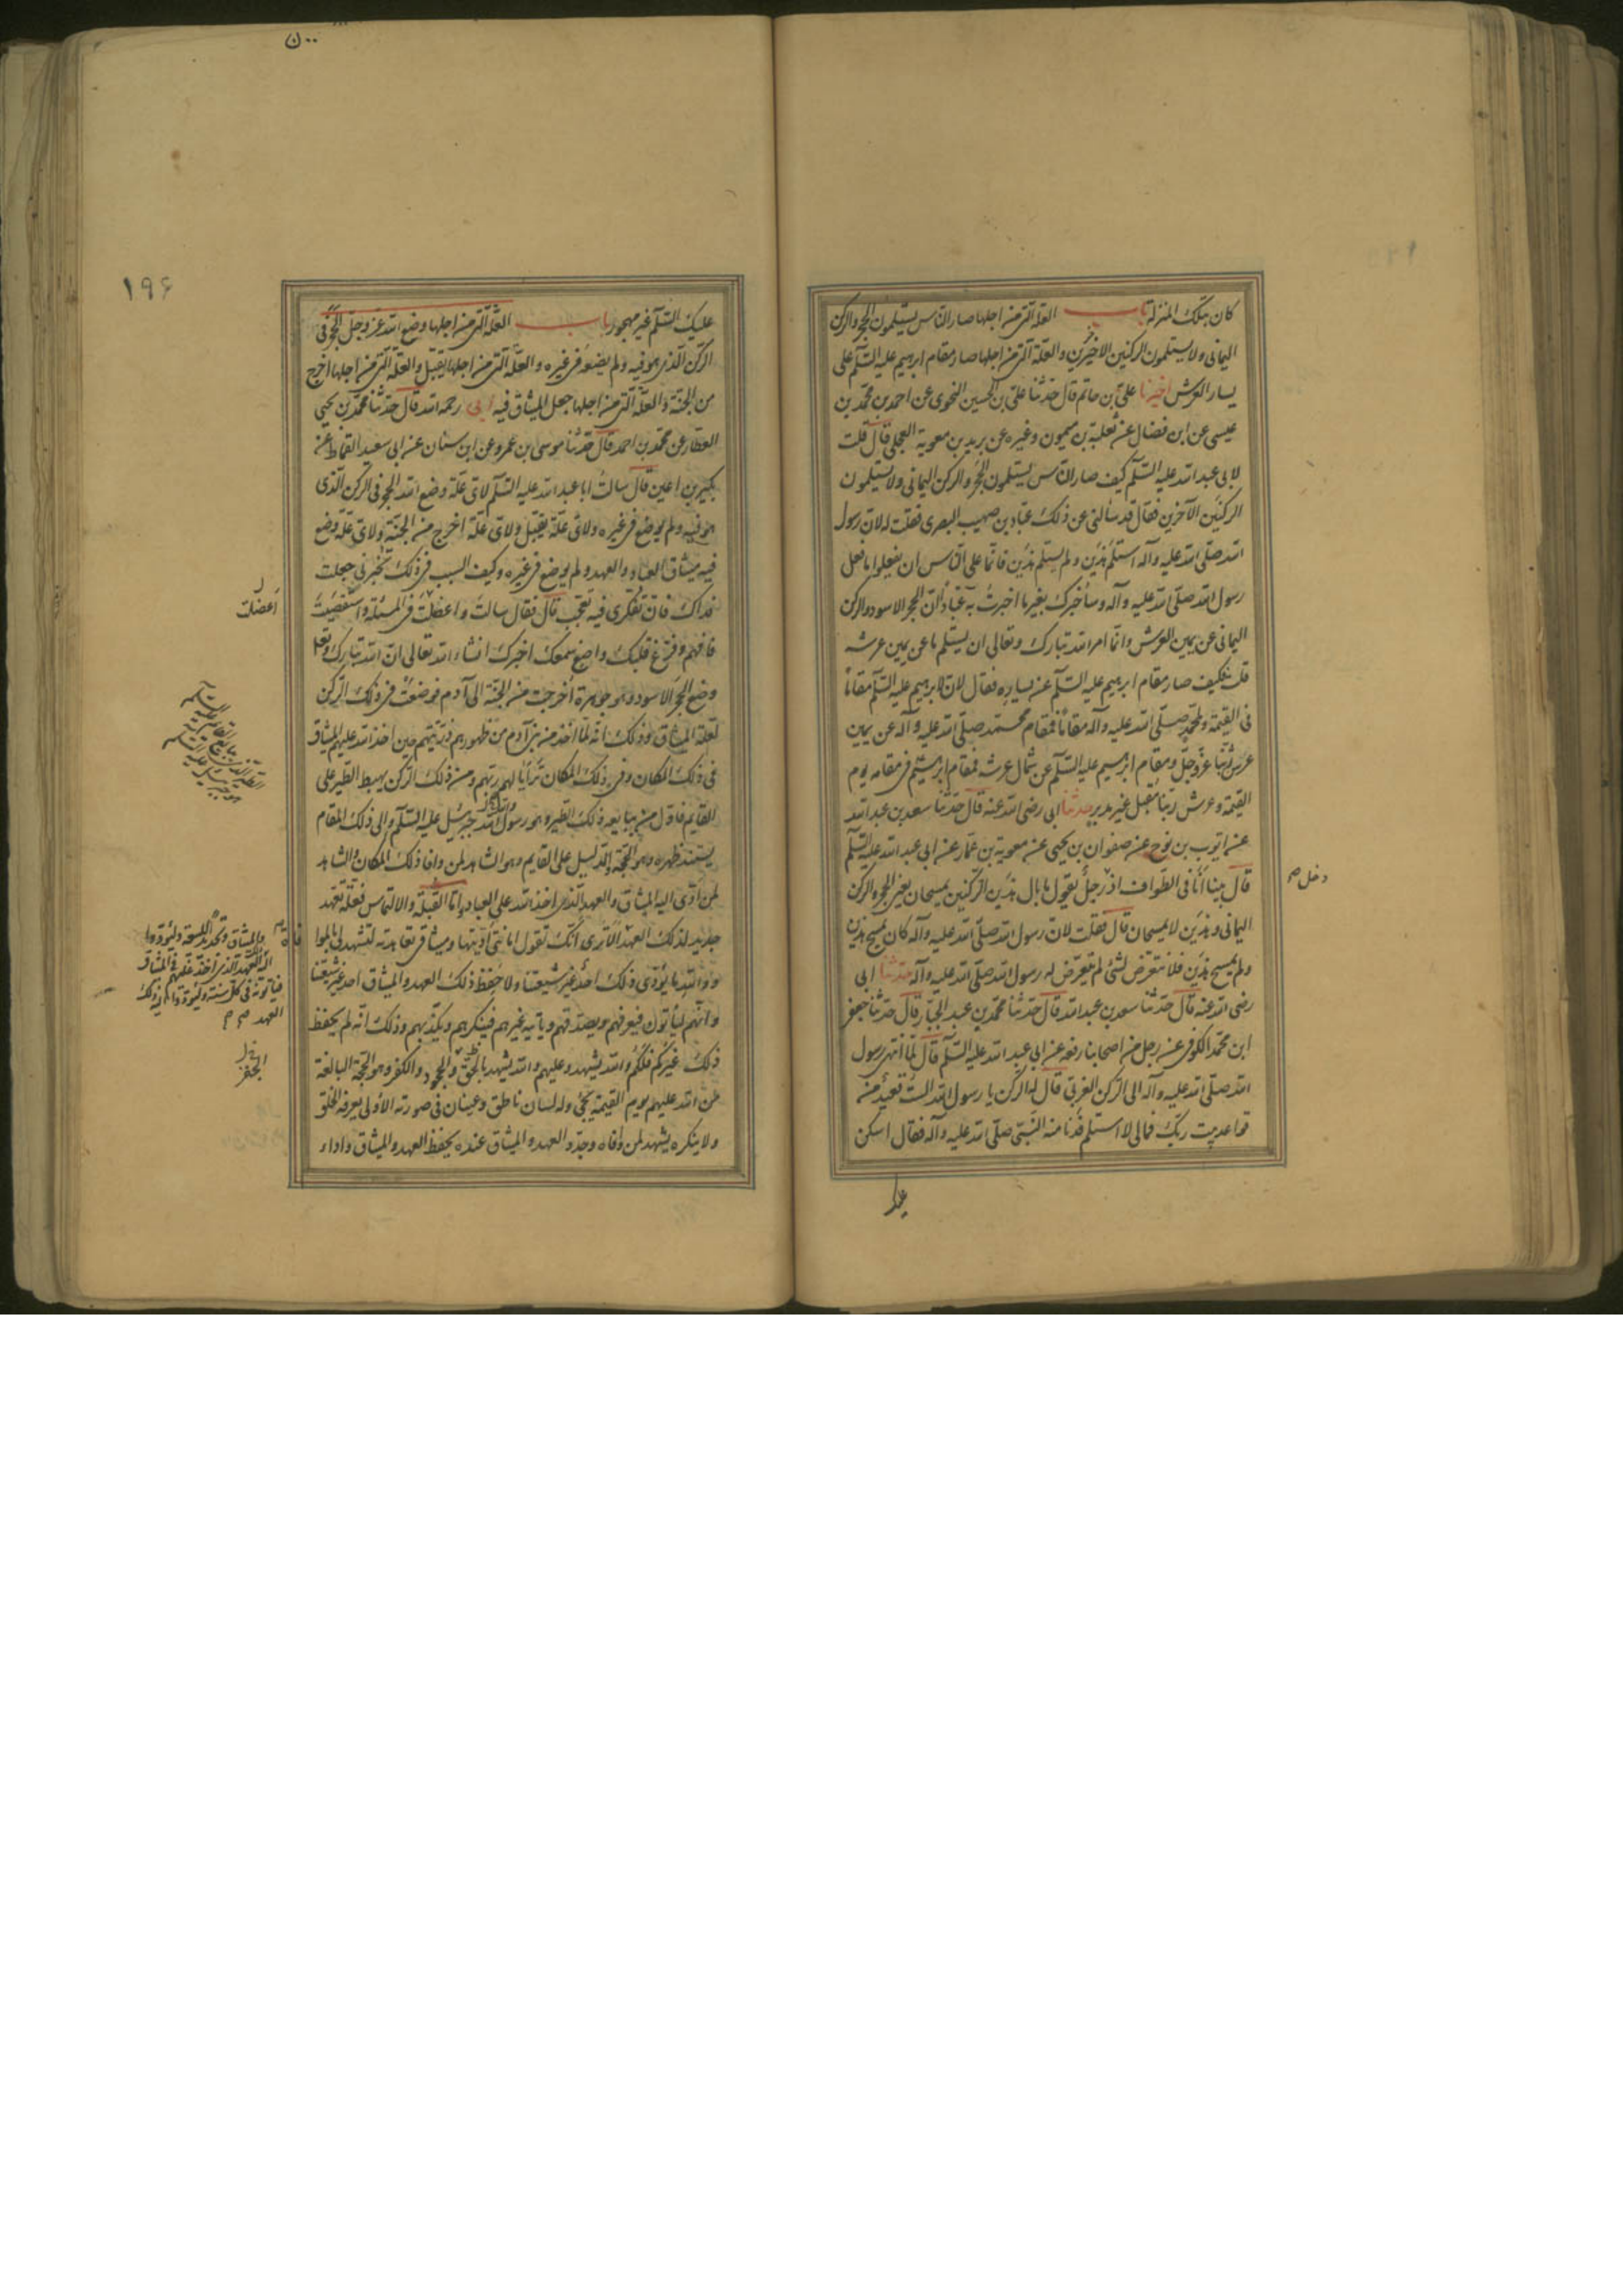 كان بتلك المنزلة باب العلة التي من اجلها صار الناس يستلمون الحجر والركن
اليماني ولا يستلمون الركنين الاخيرين والعلة التي من اجلها صار مقام ابرهيم عليه السلام على
يسار العرش اخبرنا علي بن حاتم قال حدثنا علي بن الحسين النحوي عن احمد بن محمد بن
عيسى عن ابن فضال عن ثعلبة بن ميمون وغيره عن بريد بن معوية العجلي قال قلت
لابي عبد الله عليه السلام كيف صار الناس يستلمون الحجر والركن اليماني ولا يستلمون
الركنين الآخرين فقال قد سألني عن ذلك عباد بن صهيب البصري فقلت له لان رسول
الله صلى الله عليه وآله استلم هذين ولم يستلم هذين فانما على الناس ان يفعلوا ما فعل
رسول الله صلى الله عليه وآله وسأخبرك بغير ما اخبرت به عبادا ان الحجر الاسود والركن
اليماني عن يمين العرش وانما امر الله تبارك وتعالى ان يستلم ما عن يمين عرشه
قلت فكيف صار مقام ابرهيم عليه السلام عن يساره فقال لان لابرهيم عليه السلام مقاما
في القيمة ولمحمد صلى الله عليه وآله مقاما فمقام محمد صلى الله عليه وآله عن يمين
عرش ربنا عز وجل ومقام ابرهيم عليه السلام عن شمال عرشه فمقام ابرهيم في مقامه يوم
القيمة وعرش ربنا مقبل غير مدبر حدثنا ابي رضي الله عنه قال حدثنا سعد بن عبد الله
عن ايوب بن نوح عن صفوان بن يحيى عن معوية بن عمار عن ابي عبد الله عليه السلام
قال بينا انا في الطواف اذ رجل يقول ما بال هذين الركنين يمسحان يعني الحجر والركن
دخل
اليماني وهذين لا يمسحان قال فقلت لان رسول الله صلى الله عليه وآله كان يمسح هذين
ولم يمسح هذين فلا نتعرض لشئ لم يتعرض له رسول الله صلى الله عليه وآله حدثنا ابي
رضي الله عنه قال حدثنا سعد بن عبد الله قال حدثنا محمد بن عبد الجبار قال حدثنا جعفر
ابن محمد الكوفي عن رجل من اصحابنا رفعه عن ابي عبد الله عليه السلام قال لما انتهى رسول
الله صلى الله عليه وآله الى الركن الغربي قال له الركن يا رسول الله الست قعيد من
قواعد بيت ربك فمالي لا استلم فدنا منه النبي صلى الله عليه وآله فقال اسكن
عليك
١٩۶
عليك السلام غير مهجور باب العلة التي من اجلها وضع الله عز وجل الحجر في
الركن الذي هو فيه ولم يضعه في غيره والعلة التي من اجلها يقبل والعلة التي من اجلها اخرج
من الجنة والعلة التي من اجلها جعل الميثاق فيه ابي رحمه الله قال حدثنا محمد بن يحيى
العطار عن محمد بن احمد قال حدثنا موسى بن عمرو عن ابن سنان عن ابي سعيد القماط عن
بكير بن اعين قال سالت ابا عبد الله عليه السلام لاي علة وضع الله الحجر في الركن الذي
هو فيه ولم يوضع في غيره ولاي علة يقبل ولاي علة اخرج من الجنة ولاي علة وضع
فيه ميثاق العباد والعهد ولم يوضع في غيره وكيف السبب في ذلك تخبرني جعلت
فداك فان تفكري فيه تعجب قال فقال سالت واعضلت في المسئلة واستقصيت
أعضلت
فافهم وفرغ قلبك واصغ سمعك اخبرك انشاء الله تعالى ان الله تبارك وتعلى
وضع الحجر الاسود وهو جوهرة اخرجت من الجنة الى آدم فوضعت في ذلك الركن
لعلة الميثاق وذلك انه لما اخذ من بني آدم من ظهورهم ذريتهم حين اخذ الله عليهم الميثاق
في ذلك المكان وفي ذلك المكان ترايا لهم ربهم ومن ذلك الركن يهبط الطير على
القايم فاول من يبايعه ذلك الطير وهو رسول الله جبرئيل عليه السلام والى ذلك المقام
يستند ظهره وهو الحجة والدليل على القايم وهو الشاهد لمن وافا ذلك المكان والشاهد
لمن ادى اليه الميثاق والعهد الذي اخذ الله على العباد واما القبلة والالتماس فعلة تعهد
جديد لذلك العهد الا ترى انك تقول امانتي اديتها وميثاقي تعاهدته لتشهد لي بالموا
فاة
والميثاق وتجديدا للبيعة وليؤدوا
اليه العهد الذي اخذ عليهم في الميثاق
فياتونه في كل سنة وليؤدوا اليه ذلك
العهد
ووالله ما يؤدي ذلك احد غير شيعتنا ولا حفظ ذلك العهد والميثاق احد غير شيعتنا
وانهم ليأتون فيعرفهم ويصدقهم وياتيه غيرهم فينكرهم ويكذبهم وذلك انه لم يحفظ
ذلك غيركم فلكم والله يشهد وعليهم والله يشهد بالحق والجحود والكفر وهو الحجة البالغة
من الله عليهم يوم القيمة يجئ وله لسان ناطق وعينان في صورته الاولى يعرفه الخلق
ولا ينكره يشهد لمن وافاه وجدد العهد والميثاق عنده يحفظ العهد والميثاق واداء